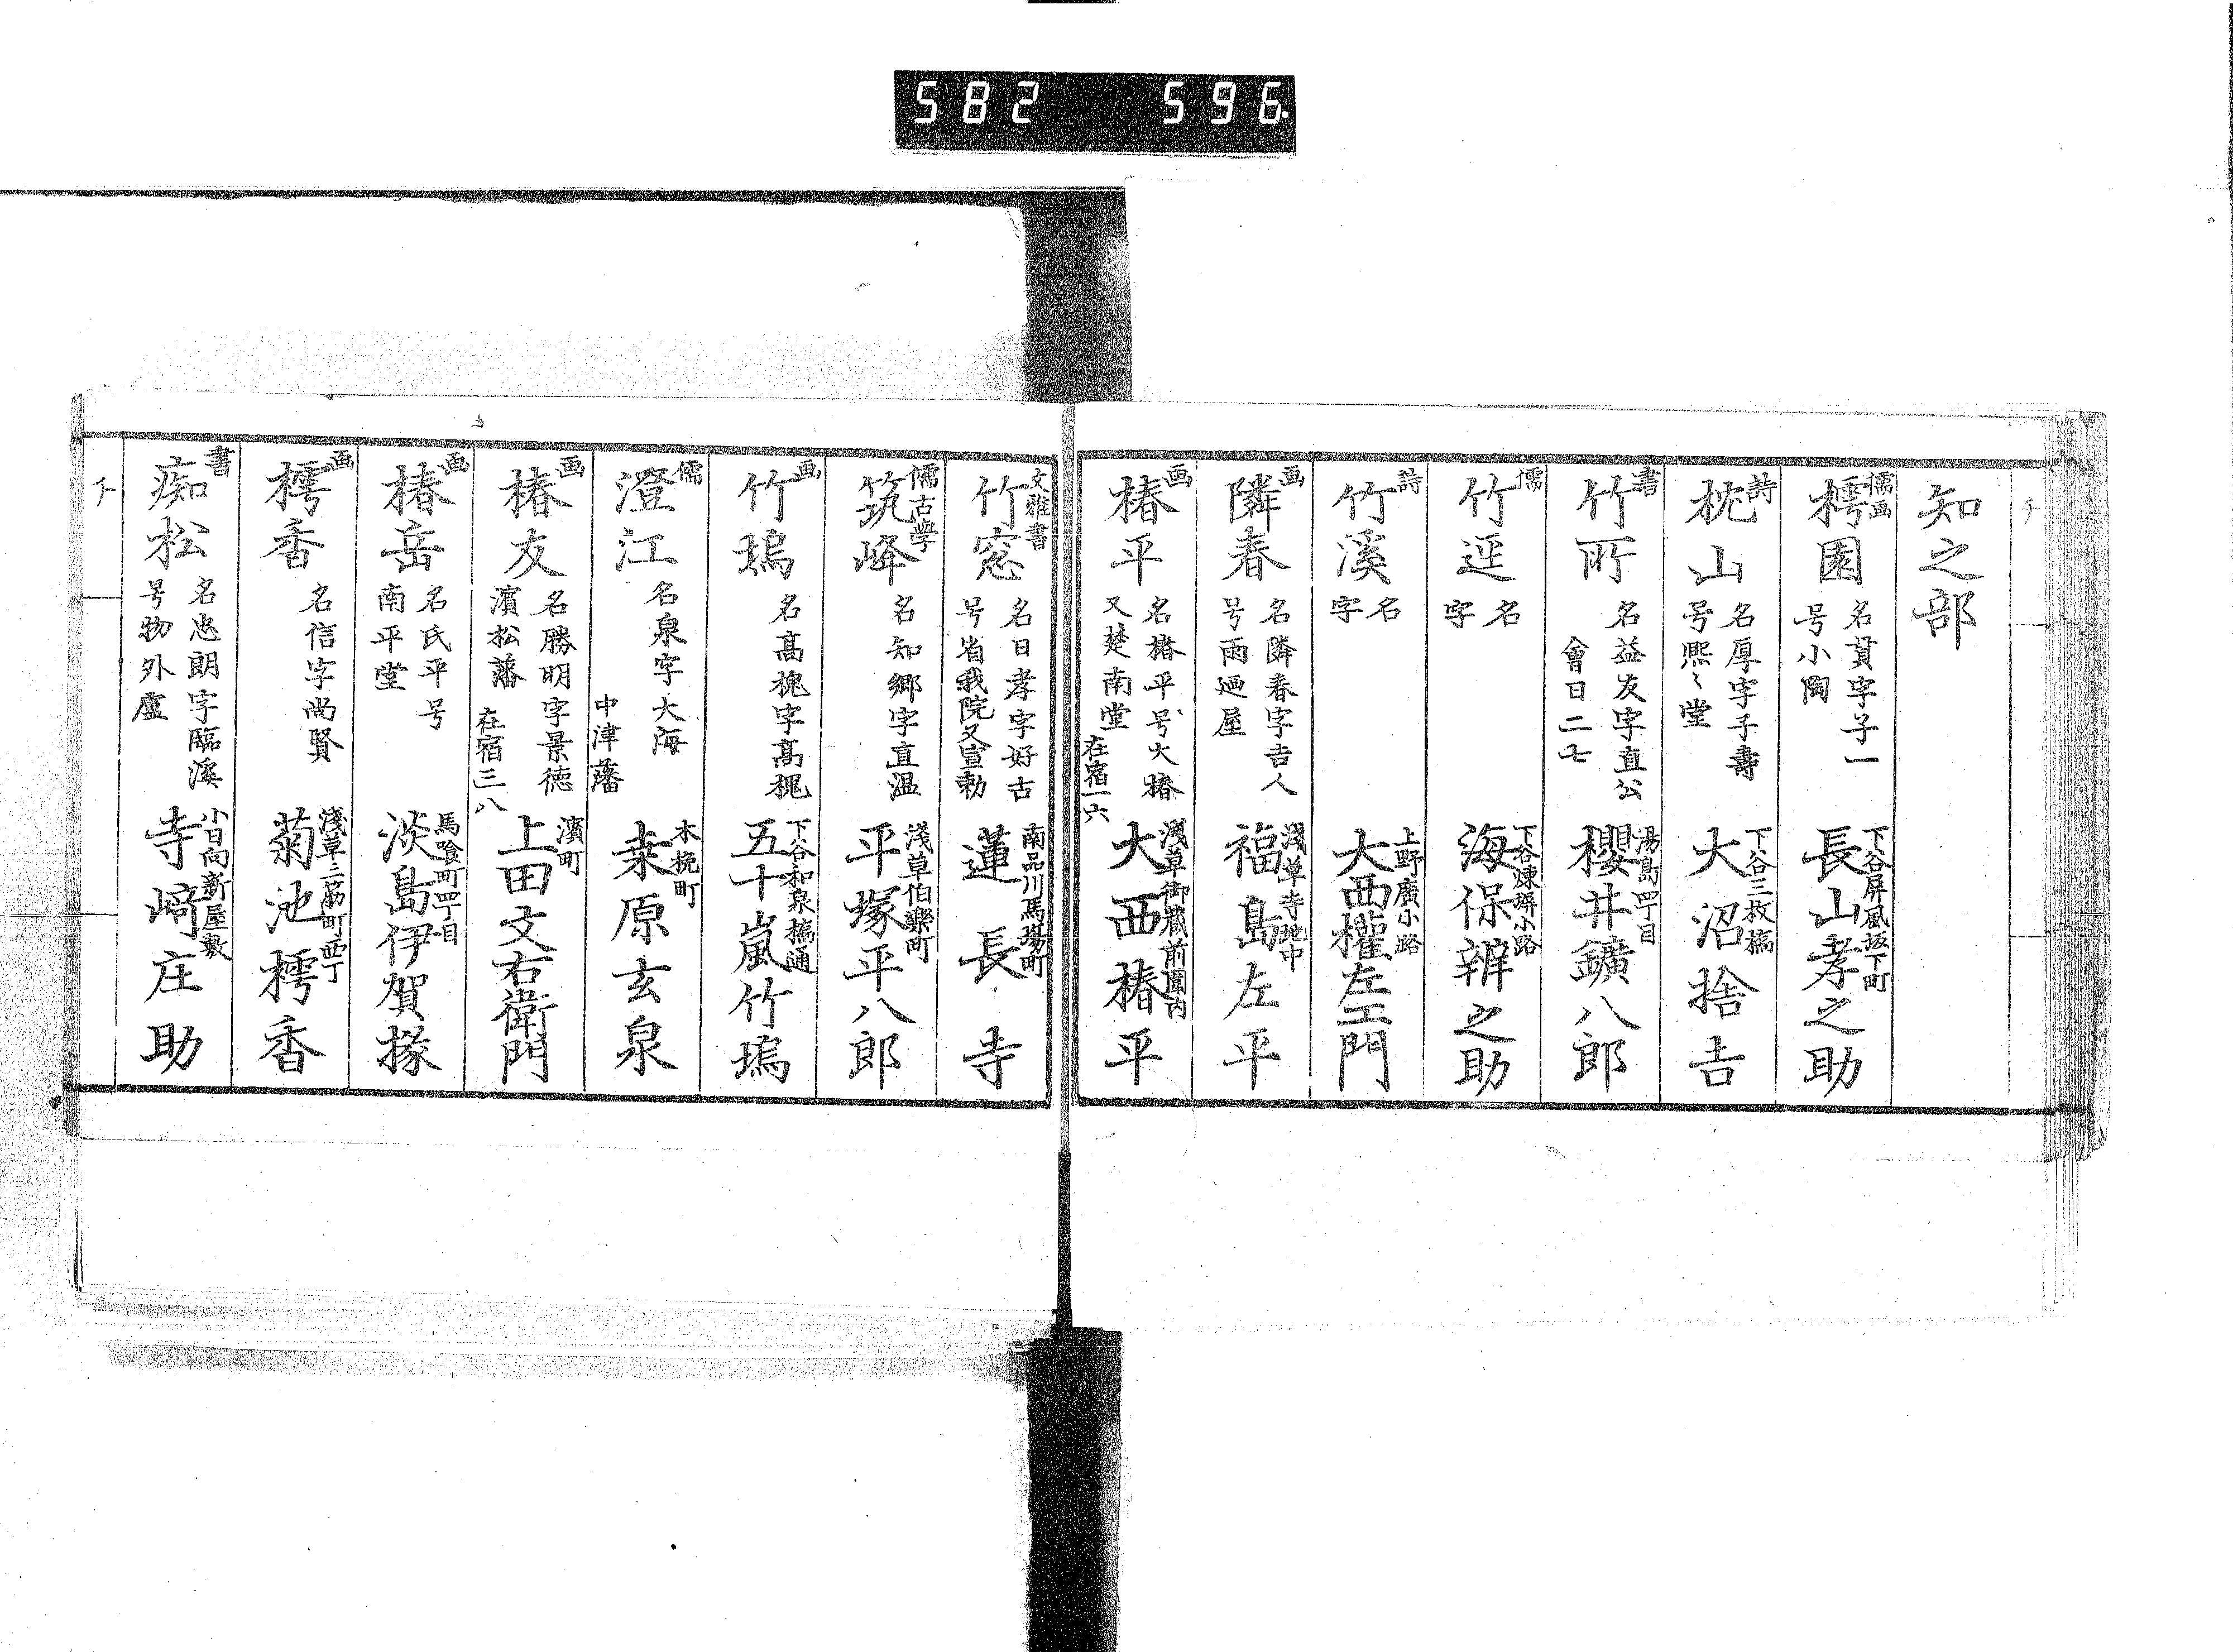 582 596
チ
知之部
儒画
樗園
名貫字子一
号小陶
下谷屏風坂下町
長山孝之助
詩
枕山
名厚字子壽
号熙〻堂
下谷三枚橋
大沼捨吉
書
竹所
名益友字直公
會日二七
湯島四丁目
櫻井鑛八郎
儒
竹逕
名
字
下谷煉塀小路
海保辨之助
詩
竹溪
名
字
上野廣小路
大西權左エ門
画
隣春
名隣春字吉人
号雨廼屋
淺草寺地中
福島左平
画
椿平
名椿平号大椿
又楚南堂
在宿一六
淺草御藏前圍内
大西椿平
文雅書
竹窓
名日孝字好古
号省我院又宣勅
南品川馬場町
蓮長寺
儒古學
筑峰
名知郷字直温
淺草伯樂町
平塚平八郎
画
竹塢
名髙槐字髙槐
下谷和泉橋通
五十嵐竹塢
儒
澄江
名泉字大海
中津藩
木挽町
桒原玄泉
画
椿友
名勝明字景徳
濱松藩
在宿三八
濱町
上田文右衛門
画
椿岳
名氏平号
南平堂
馬喰町四丁目
淡島伊賀掾
画
樗香
名信字尚賢
淺草三筋町西丁
菊池樗香
書
痴松
名忠朗字臨溪
号物外廬
小日向新屋敷
寺﨑庄助
チ